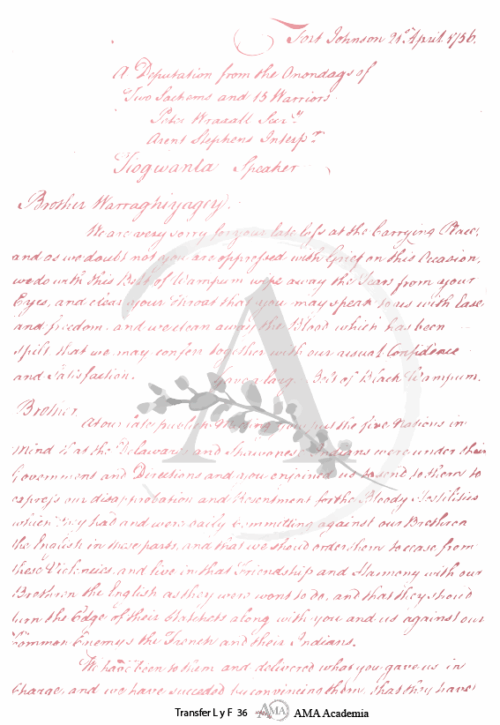 Fort Johnson 21st April 1756.
A Deputation from the Onondags of
Two Sachems and 13 Warriors
Peter Wraxall Secry
Arent Stephens Interpr
Tiogwanta Speaker
Brother Warraghiyagey.
We are very sorry for your late loss at the Carrying Place,
and as we doubt not you are oppressed with Grief on this Occasion,
we do with this Belt of Wampum wipe away the Tears from your
Eyes, and clear your Throat that you may speak to us with Ease
and freedom, and we clean away the Blood which has been
spilt that we may confer together with our usual Confidence
and Satisfaction. Gave a large Belt of Black Wampum.
Brother
At our late publick Meeting you put the five Nations in
Mind that the Delaware and Shawonese Indians were under their
Government and Directions and you enjoined us to send to them to
express our disapprobation and Resentment for the Bloody Hostilities
which they had and were daily committing against our Brethren
the English in these parts, and that we should order them to cease from
these and live in that Friendship and Harmony with our
Brethren the English as they were wont to do, and that they should
turn the Edge of their Hatchets along with you and us against our
Common Enemys the French and their Indians.
We have been to them and delivered what you gave us in
Charge, and we have succeded by convincing them, that they have
Transfer L y F 36 AMA AMA Academia